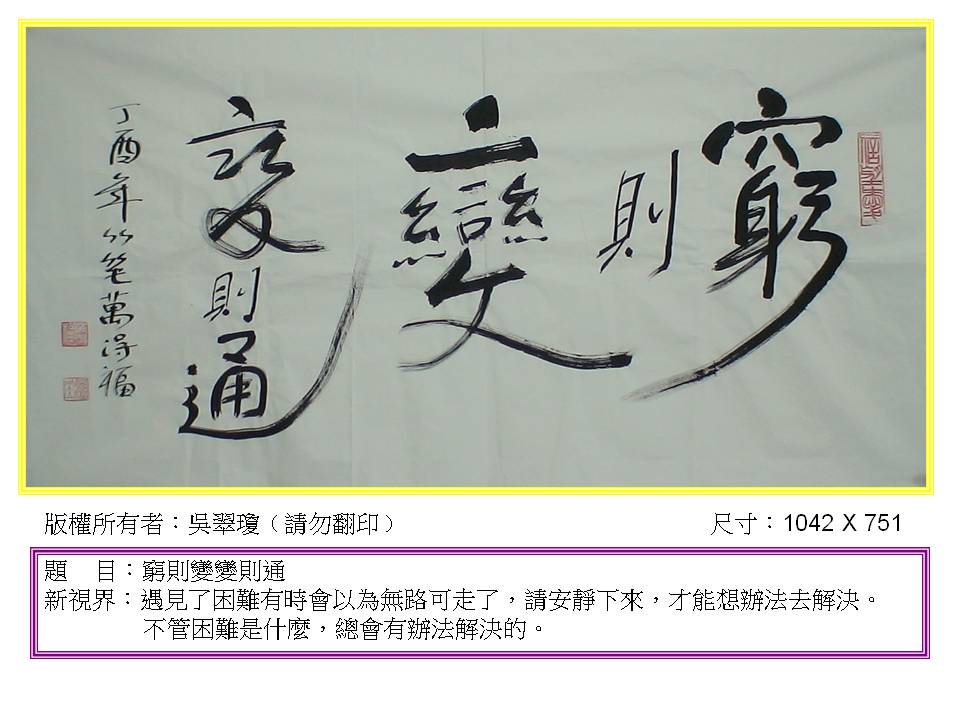 窮
則
變
變
則
通
丁酉年竹筆萬得福
版權所有者：吳翠瓊（請勿翻印）
尺寸：1042 X 751
題　目：窮則變變則通
新視界：遇見了困難有時會以為無路可走了，請安靜下來，才能想辦法去解決。
不管困難是什麼，總會有辦法解決的。